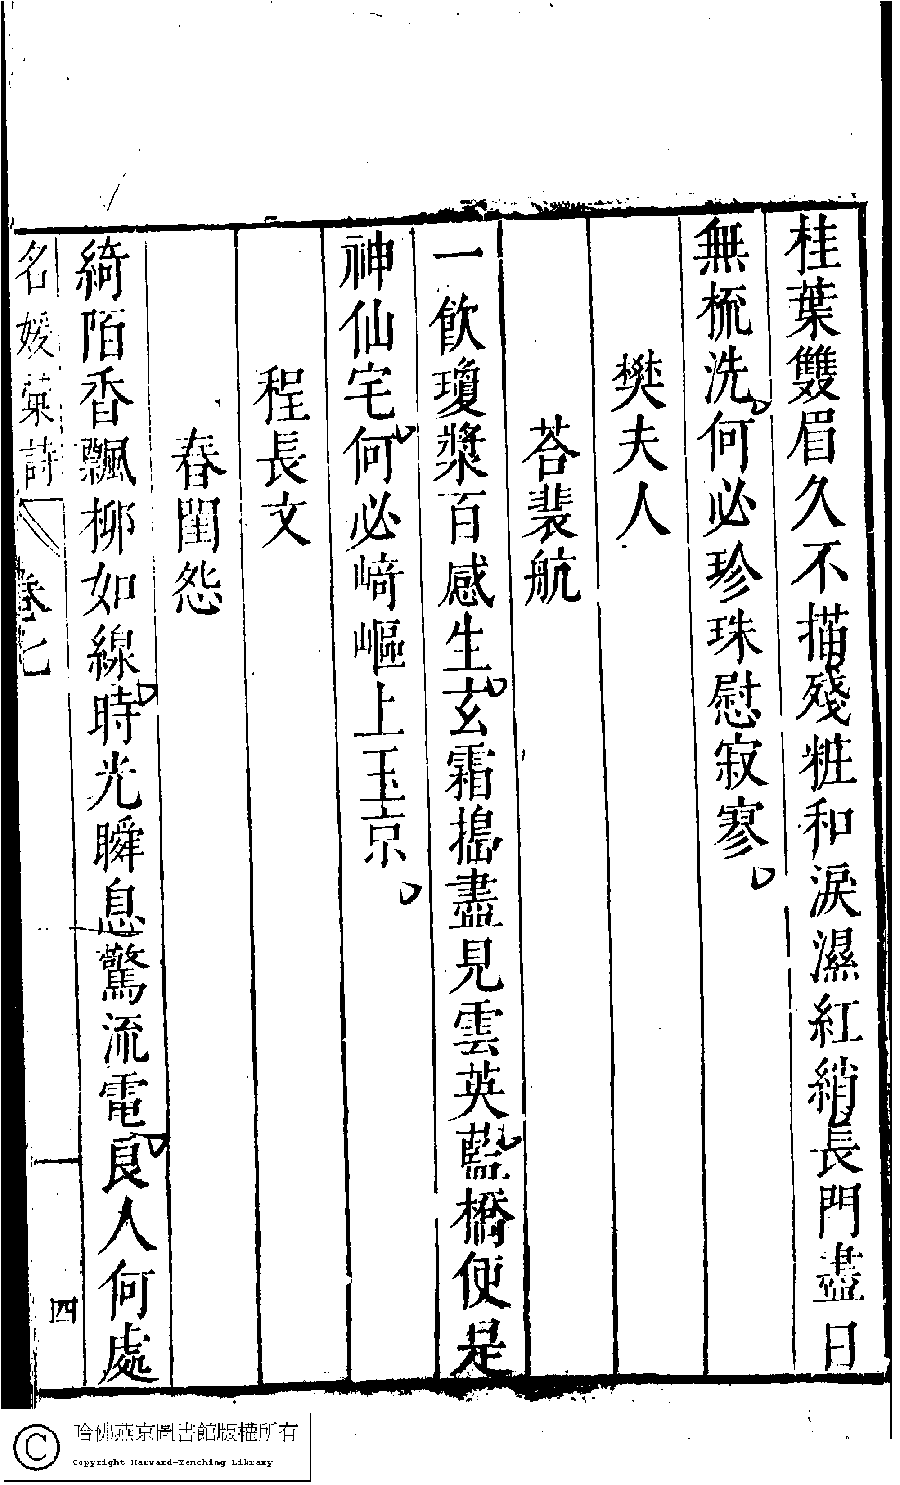 桂葉雙眉久不描殘粧和淚濕紅綃長門盡日
無梳洗何必珍珠慰寂寥
樊夫人
荅裴航
一飲瓊漿百感生玄霜搗盡見雲英藍橋便是
神仙宅何必崎嶇上玉京
程長文
春閨怨
綺陌香飄柳如線時光瞬息驚流電良人何處
名媛彙詩 卷七 四
哈佛燕京圖書館版權所有
Copyright Harvard-Yenching Library